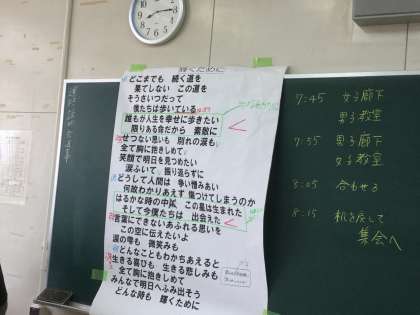 輝くために
どこまでも 続く道を
果てしない この道を
そうさいつだって
僕たちは歩いている
誰もが人生を幸せに歩きたい
限りある命だから 素敵に
せつない思いも 別れの涙も
全て胸に抱きしめて
笑顔で明日を見つめたい
涙ふいて 振り返らずに
どうして人間は 争い憎みあい
何故わかりあえず 傷つけてしまうのか
はるかな時の中 この星は生まれた
そして今僕たちは 出会えた
言葉にできないあふれる思いを
この空に伝えたいよ
涙の雫も 微笑みも
どんなこともわかちあえると
生きる喜びも 生きる悲しみも
全て胸に抱きしめて
みんなで明日へふみ出そう
どんな時も 輝くために
7:45 女子廊下
男子教室
7:55 男子廊下
女子教室
8:05 合わせる
8:15 机を戻して
集会へ